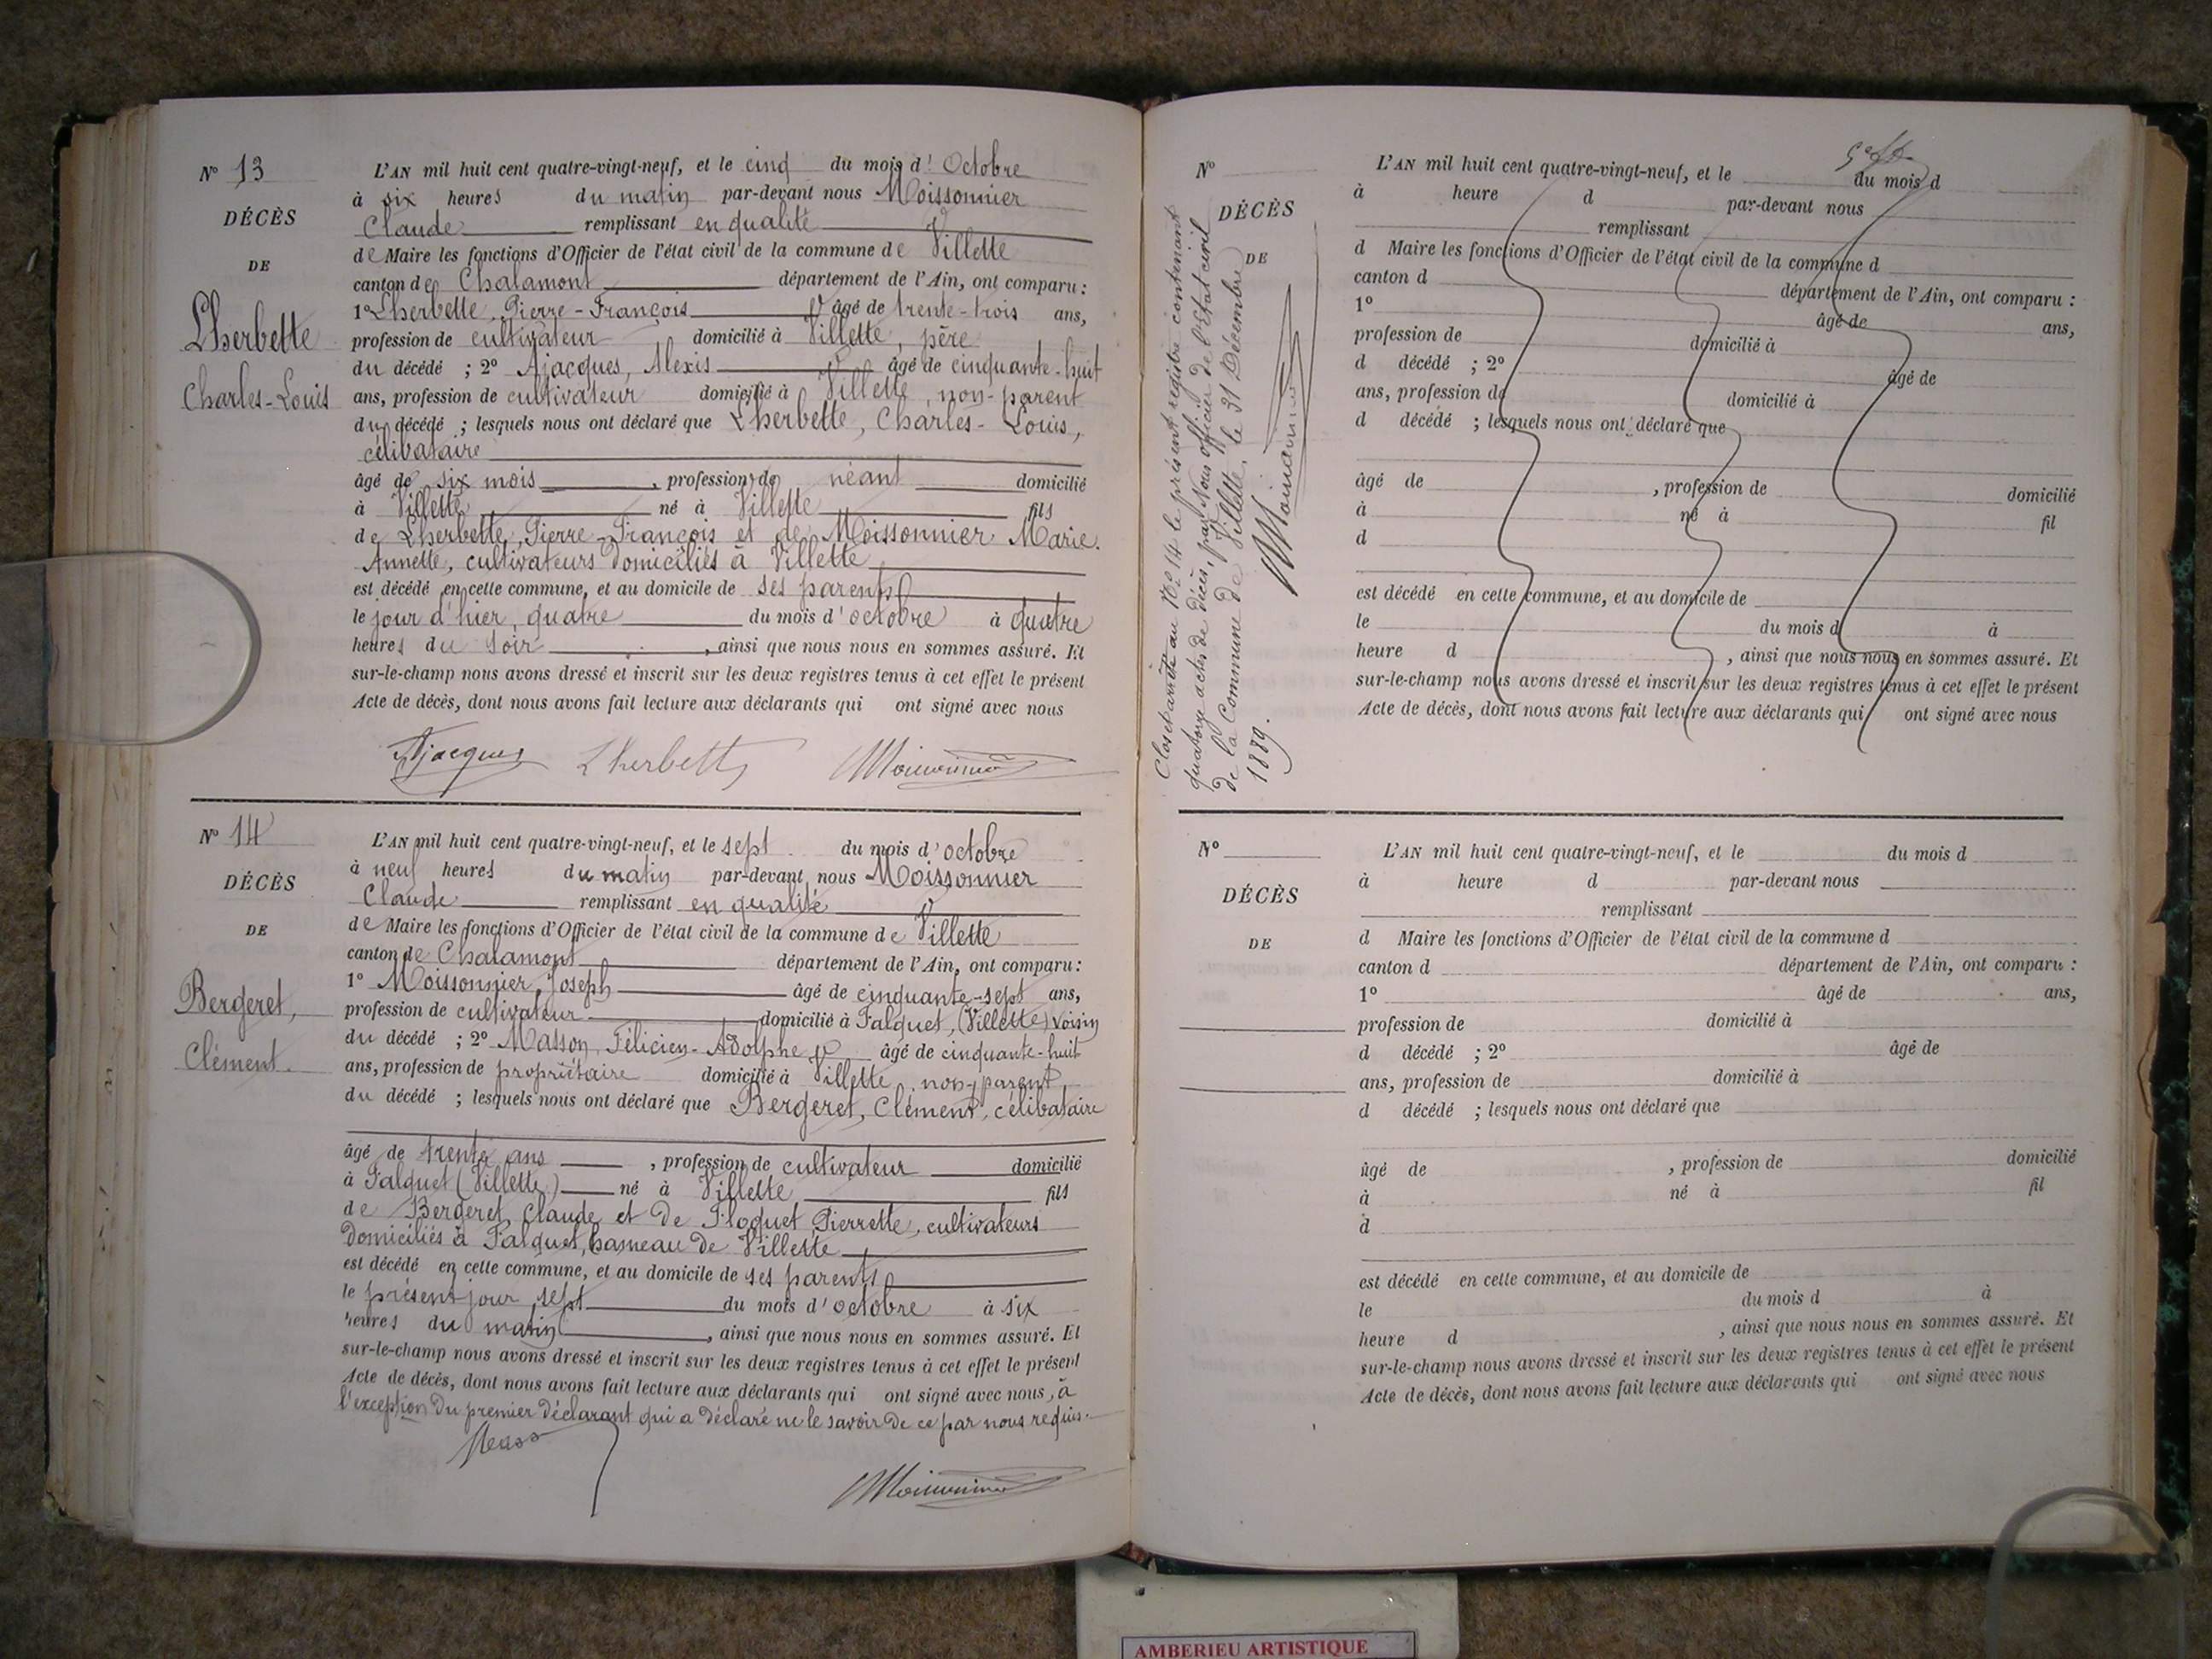 N° 13
DÉCÈS
DE
Lherbette
Charles-Louis
L'AN mil huit cent quatre-vingt-neuf, et le cinq du mois d'Octobre
à six heures du matin par-devant nous Moissonnier
Claude remplissant en qualité
de Maire les fonctions d'Officier de l'état civil de la commune de Villette
canton de Chalamont département de l'Ain, ont comparu :
1° Lherbette, Pierre-François âgé de trente-trois ans,
profession de cultivateur domicilié à Villette, père
du décédé ; 2° Ajacques, Alexis âgé de cinquante-huit
ans, profession de cultivateur domicilié à Villette, non-parent
du décédé ; lesquels nous ont déclaré que Lherbette, Charles-Louis,
célibataire
âgé de six mois, profession de néant domicilié
à Villette né à Villette fils
de Lherbette, Pierre-François et de Moissonnier Marie
Annette, cultivateurs domiciliés à Villette
est décédé en cette commune, et au domicile de ses parents
le jour d'hier, quatre du mois d'octobre à quatre
heures du soir, ainsi que nous nous en sommes assuré. Et
sur-le-champ nous avons dressé et inscrit sur les deux registres tenus à cet effet le présent
Acte de décès, dont nous avons fait lecture aux déclarants qui ont signé avec nous
Ajacques Lherbette Moissonnier
N° 14
DÉCÈS
DE
Bergeret,
Clément.
L'AN mil huit cent quatre-vingt-neuf, et le sept du mois d'octobre
à neuf heures du matin par-devant nous Moissonnier
Claude remplissant en qualité
de Maire les fonctions d'Officier de l'état civil de la commune de Villette
canton de Chalamont département de l'Ain, ont comparu :
1° Moissonnier, Joseph âgé de cinquante-sept ans,
profession de cultivateur domicilié à Falquet, (Villette) voisin
du décédé ; 2° Masson, Félicien-Adolphe âgé de cinquante-huit
ans, profession de propriétaire domicilié à Villette, non-parent
du décédé ; lesquels nous ont déclaré que Bergeret, Clément, célibataire
âgé de trente ans, profession de cultivateur domicilié
à Falquet (Villette) né à Villette fils
de Bergeret, Claude et de Floquet Pierrette, cultivateurs
domiciliés à Falquet, hameau de Villette
est décédé en cette commune, et au domicile de ses parents
le présent jour, sept du mois d'octobre à six
heures du matin, ainsi que nous nous en sommes assuré. Et
sur-le-champ nous avons dressé et inscrit sur les deux registres tenus à cet effet le présent
Acte de décès, dont nous avons fait lecture aux déclarants qui ont signé avec nous, à
l'exception du premier déclarant qui a déclaré ne le savoir de ce par nous requis.
Moissonnier
Clos et arrêté au N° 14 le présent registre contenant
quatorze actes de décès, par Nous officier de l'Etat civil
de la Commune de Villette, le 31 Décembre
1889.
Moissonnier
N°
DÉCÈS
DE
L'AN mil huit cent quatre-vingt-neuf, et le du mois d
à heure d par-devant nous
remplissant
d Maire les fonctions d'Officier de l'état civil de la commune d
canton d département de l'Ain, ont comparu :
1° âgé de ans,
profession de domicilié à
d décédé ; 2° âgé de
ans, profession de domicilié à
d décédé ; lesquels nous ont déclaré que
âgé de , profession de domicilié
à né à fil
d
est décédé en cette commune, et au domicile de
le du mois d à
heure d , ainsi que nous nous en sommes assuré. Et
sur-le-champ nous avons dressé et inscrit sur les deux registres tenus à cet effet le présent
Acte de décès, dont nous avons fait lecture aux déclarants qui ont signé avec nous
N°
DÉCÈS
DE
L'AN mil huit cent quatre-vingt-neuf, et le du mois d
à heure d par-devant nous
remplissant
d Maire les fonctions d'Officier de l'état civil de la commune d
canton d département de l'Ain, ont comparu :
1° âgé de ans,
profession de domicilié à
d décédé ; 2° âgé de
ans, profession de domicilié à
d décédé ; lesquels nous ont déclaré que
âgé de , profession de domicilié
à né à fil
d
est décédé en cette commune, et au domicile de
le du mois d à
heure d , ainsi que nous nous en sommes assuré. Et
sur-le-champ nous avons dressé et inscrit sur les deux registres tenus à cet effet le présent
Acte de décès, dont nous avons fait lecture aux déclarants qui ont signé avec nous
AMBERIEU ARTISTIQUE